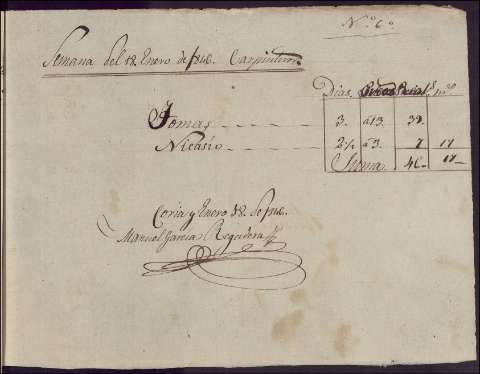 N.º 6º
Semana del 18 Enero de Carpinteros.
Dias. Reales mrs.
Tomas 3. á 13. 39.
Nicasio 2½ á 3. 7 17
Suma. 46. 17
Coria y Enero 18 de
Manuel Garcia Regidera